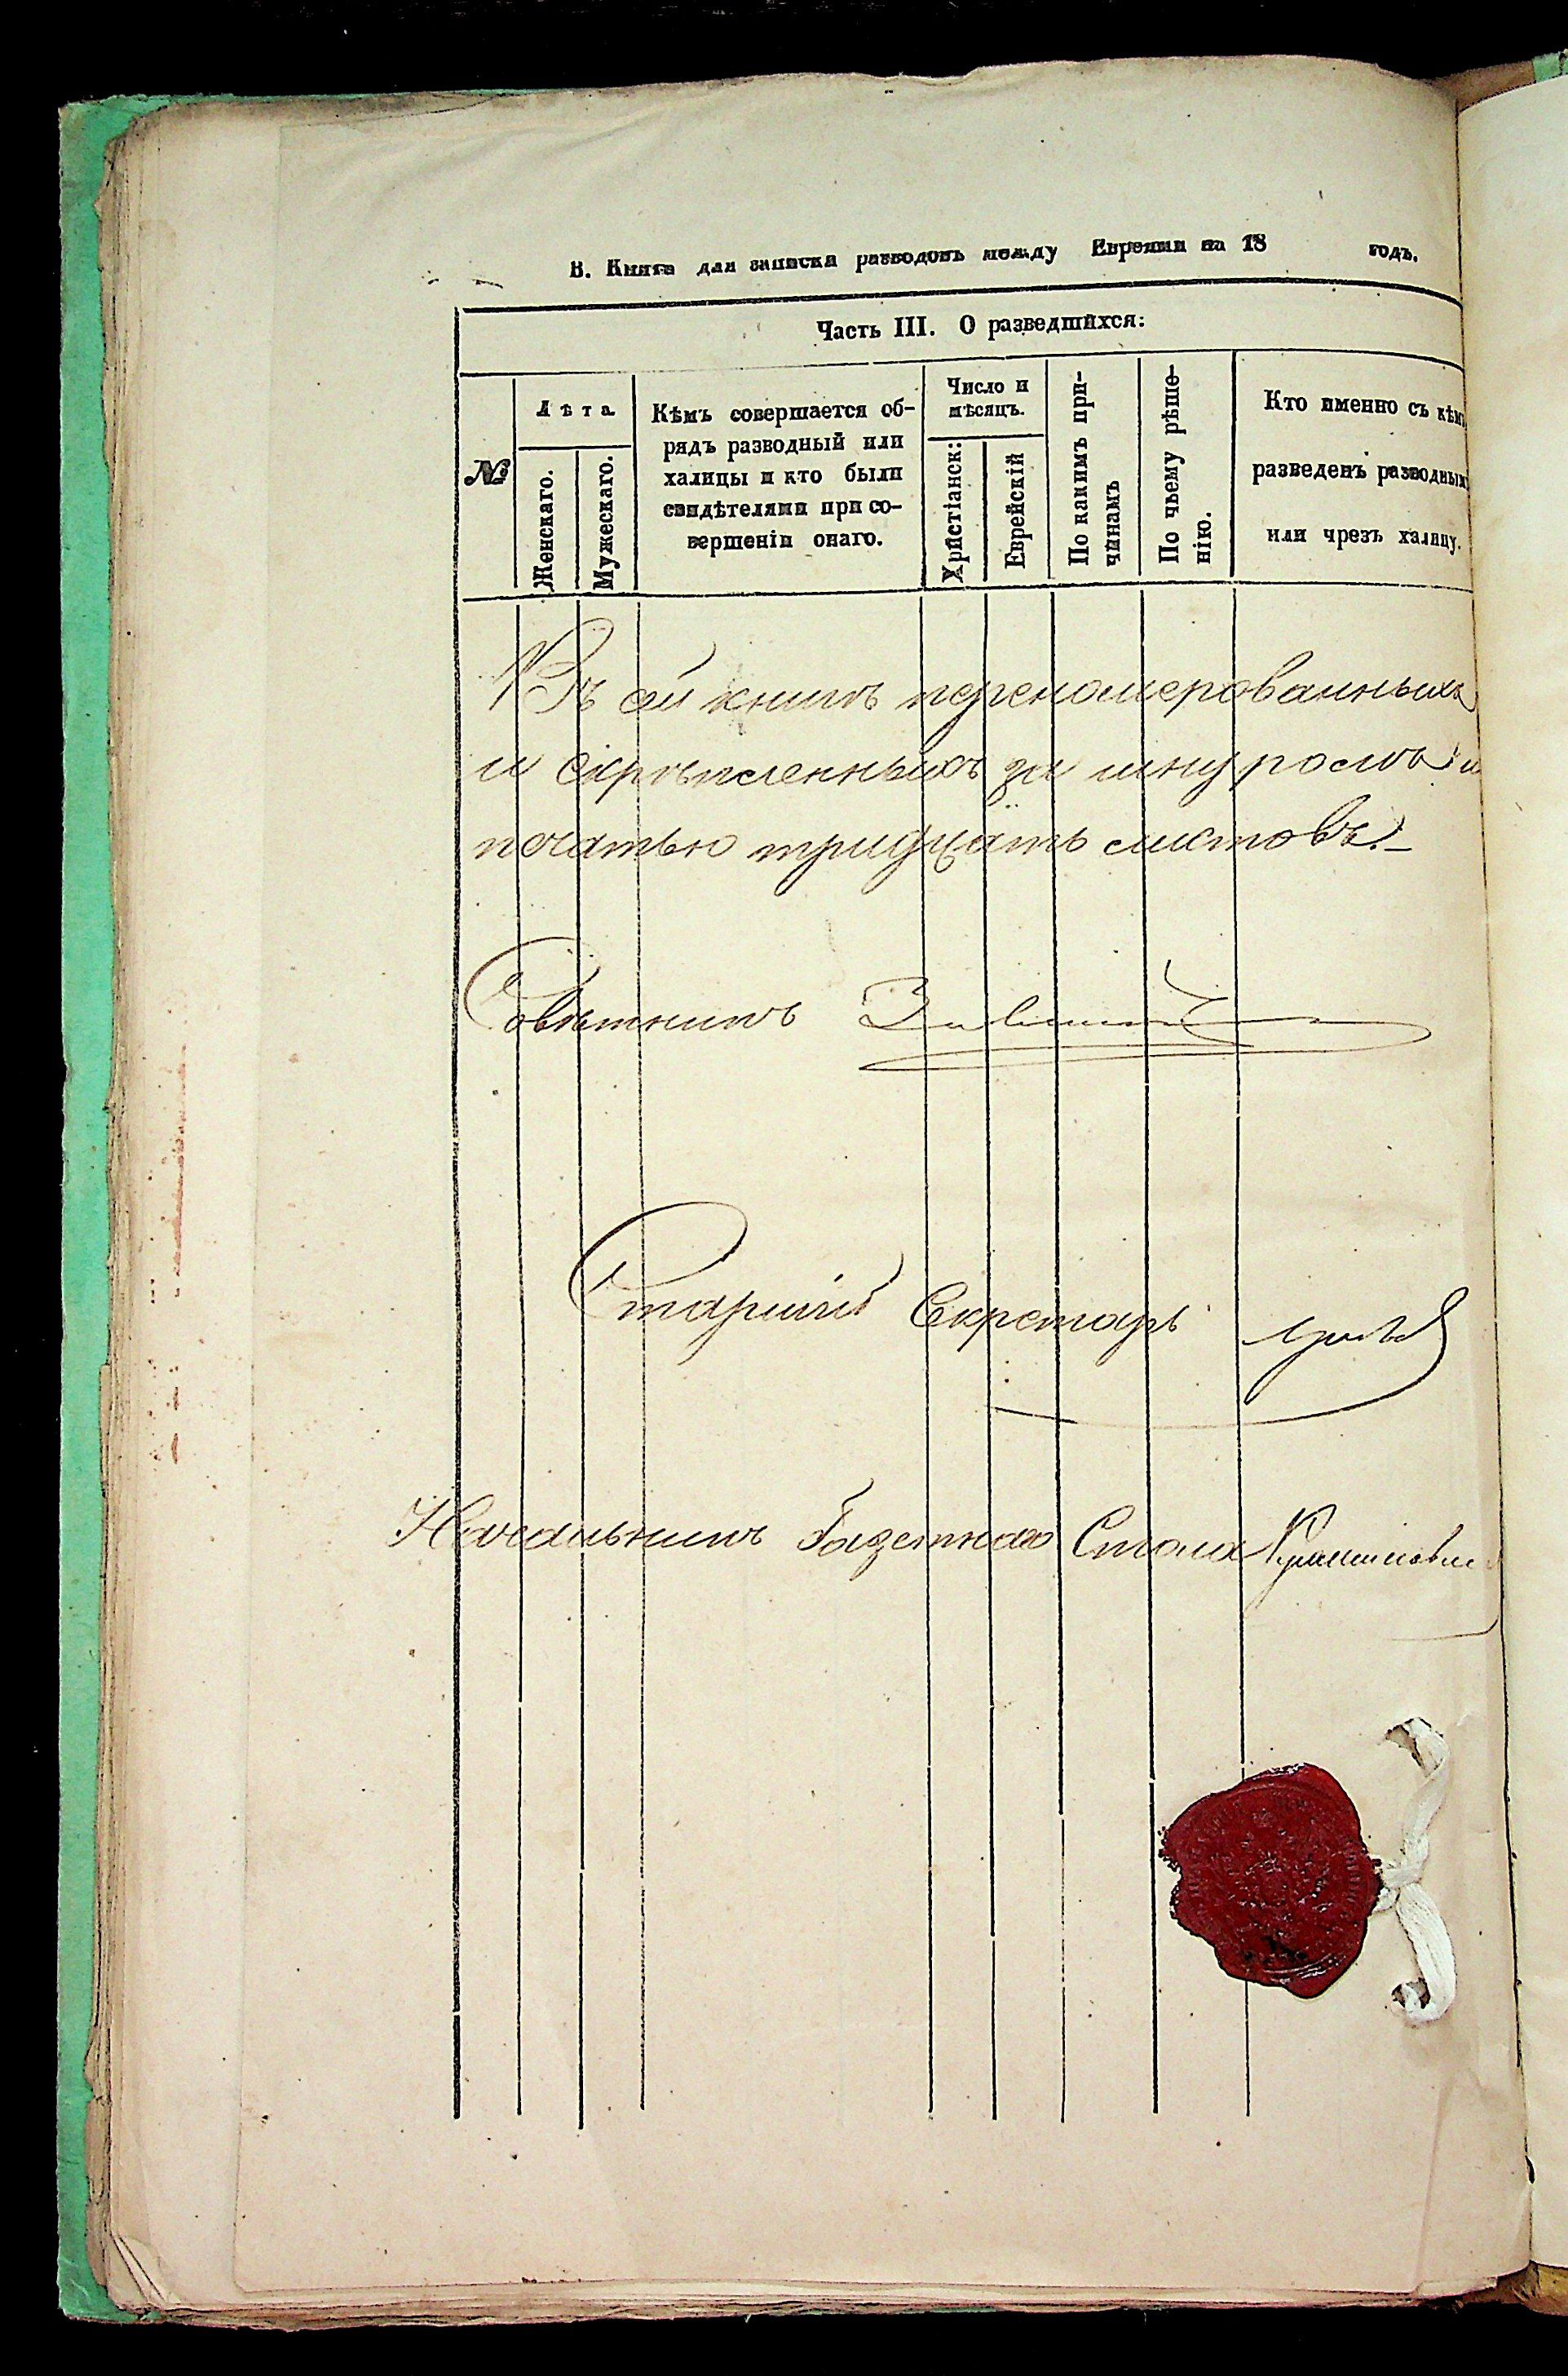 В. Книга для записки разводовъ между Евреями на 18 годъ.
Часть III. О разведшихся:
№
Лѣта
Женскаго.
Мужескаго.
Кѣмъ совершается об-
рядъ разводный или
халицы и кто были
свидѣтелями при со-
вершеніи онаго.
Число и
мѣсяцъ.
Христіанск:
Еврейскій
По какимъ при-
чинамъ
По чьему рѣше-
нію.
Кто именно съ кѣмъ
разведенъ разводнымъ
или чрезъ халицу.
Въ сей книгѣ переномерованныхъ
и скрѣпленныхъ за шнуромъ и
печатью тридцать листовъ.–
Совѣтникъ
Старшій Секретарь
Начальникъ Газетнаго Стола